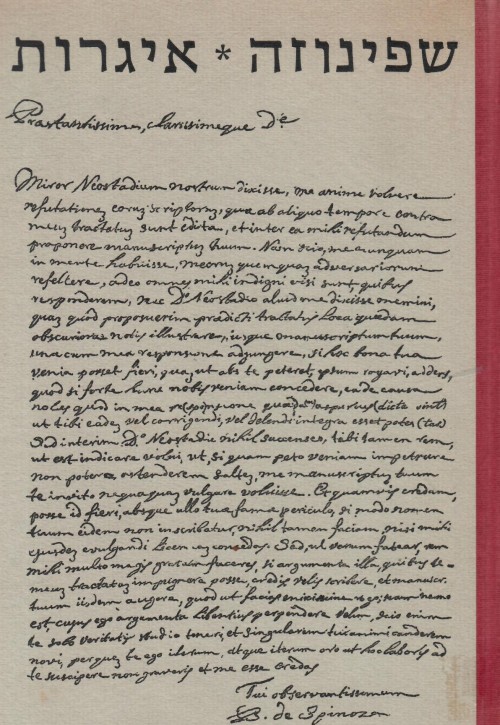 שפינוזה * איגרות
Præstantissime, clarissimeque De
Miror Neostadium nostrum dixisse, me animo volvere
refutationem eorum scriptorum, quæ ab aliquo tempore contra
meum tractatum sunt edita, et inter ea mihi refutandum
proponere manuscriptum tuum. Nam scio, me nunquam
in mente habuisse, meorum quemquam adversariorum
refellere, adeo omnes mihi indigni visi sunt, quibus
responderem, nec De Neostadio aliud me dixisse memini,
quam quod proposuerim prædicti tractatus loca quædam
obscuriora notis illustrare, iisque manuscriptum tuum,
una cum mea responsione adjungere, si hoc bona tua
venia posset fieri, quam, ut abs te peteret, ipsum rogavi, addens,
quod si forte hanc nobis veniam concedere, eade causa
noles quod in mea responsione quædam asperius dicta sint
ut tibi eadem vel corrigendi, vel delendi integra esset potestas
Sed interim De Neostadio nihil succenseo, tibi tamen rem,
ut est indicare volui, ut, si quam peto veniam impetrare
non potero ostenderem saltem, me manuscriptum tuum
te invito nequaquam vulgare voluisse. Et quamvis credam,
posse id fieri, absque ullo tuæ famæ periculo, si modo nomen
tuum eidem non inscribatur, nihil tamen faciam, nisi mihi
ejusdem evulgandi licentiam concedas. Sed, ut verum fatear, rem
mihi multo magis gratam faceres, si argumenta illa, quibus te
meum tractatum impugnare posse, credis velis scribere, et manuscr.
tuum iisdem augere, quod ut facias enixissime rogo, nam nemo
est, cujus ego argumenta libentius perpendere velim, scio enim
te solo veritatis studio teneri, et singularem tui animi candorem
novi, per quem te ego iterum, atque iterum oro ut hoc laboris ad
te suscipere non graveris et me esse credas
Tui observantissimum
B. de Spinoza